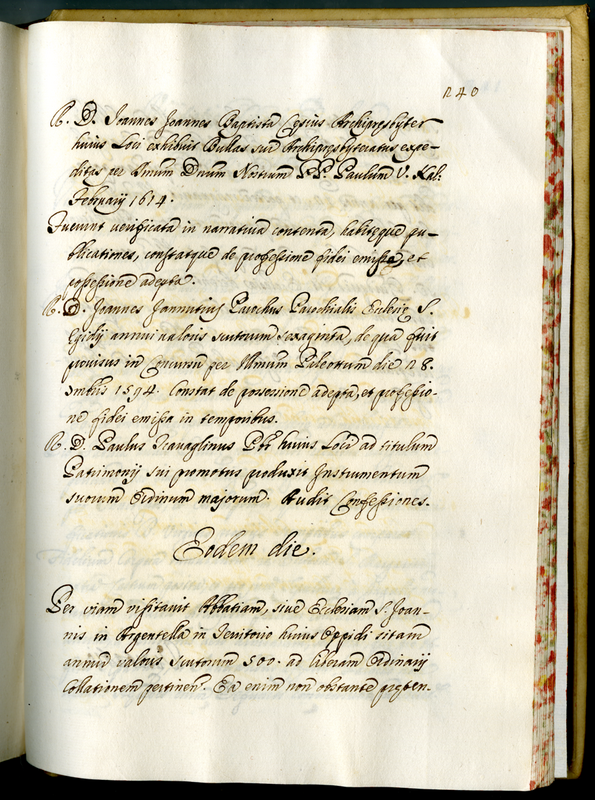 240
R. D. Joannes Joannes Baptista Coscius Archipresbyter
huius Loci exhibuit Bullas sui Archipresbyteratus expe-
ditas per Smum Dnum Nostrum PP. Paulum V. Kal:
Februarij 1614.
Fuerunt verificata in narrativa contenta, habitęque pu-
blicationes, constatque de professione fidei emissa, et
possessione adepta.
R. D. Joannes Jannutius Parochus Parochialis Ecclesię S.
Egidij annui valoris scutorum sexaginta, de qua fuit
provisus in Concursu per Illmum Paleotum die 28.
1594. Constat de possessione adepta, et professio-
ne fidei emissa in temporibus.
R. D. Paulus Pbr huius Loci ad titulum
Patrimonij sui promotus produxit Instrumentum
suorum Ordinum majorum. Audit Confessiones.
Eodem die.
Per viam visitavit Abbatiam, sive Ecclesiam S. Joan-
nis in Argentella in Territorio huius Oppidi sitam
annui valoris scutorum 500. ad liberam Ordinarij
Collationem pertinen. Ea enim non obstante pręten-